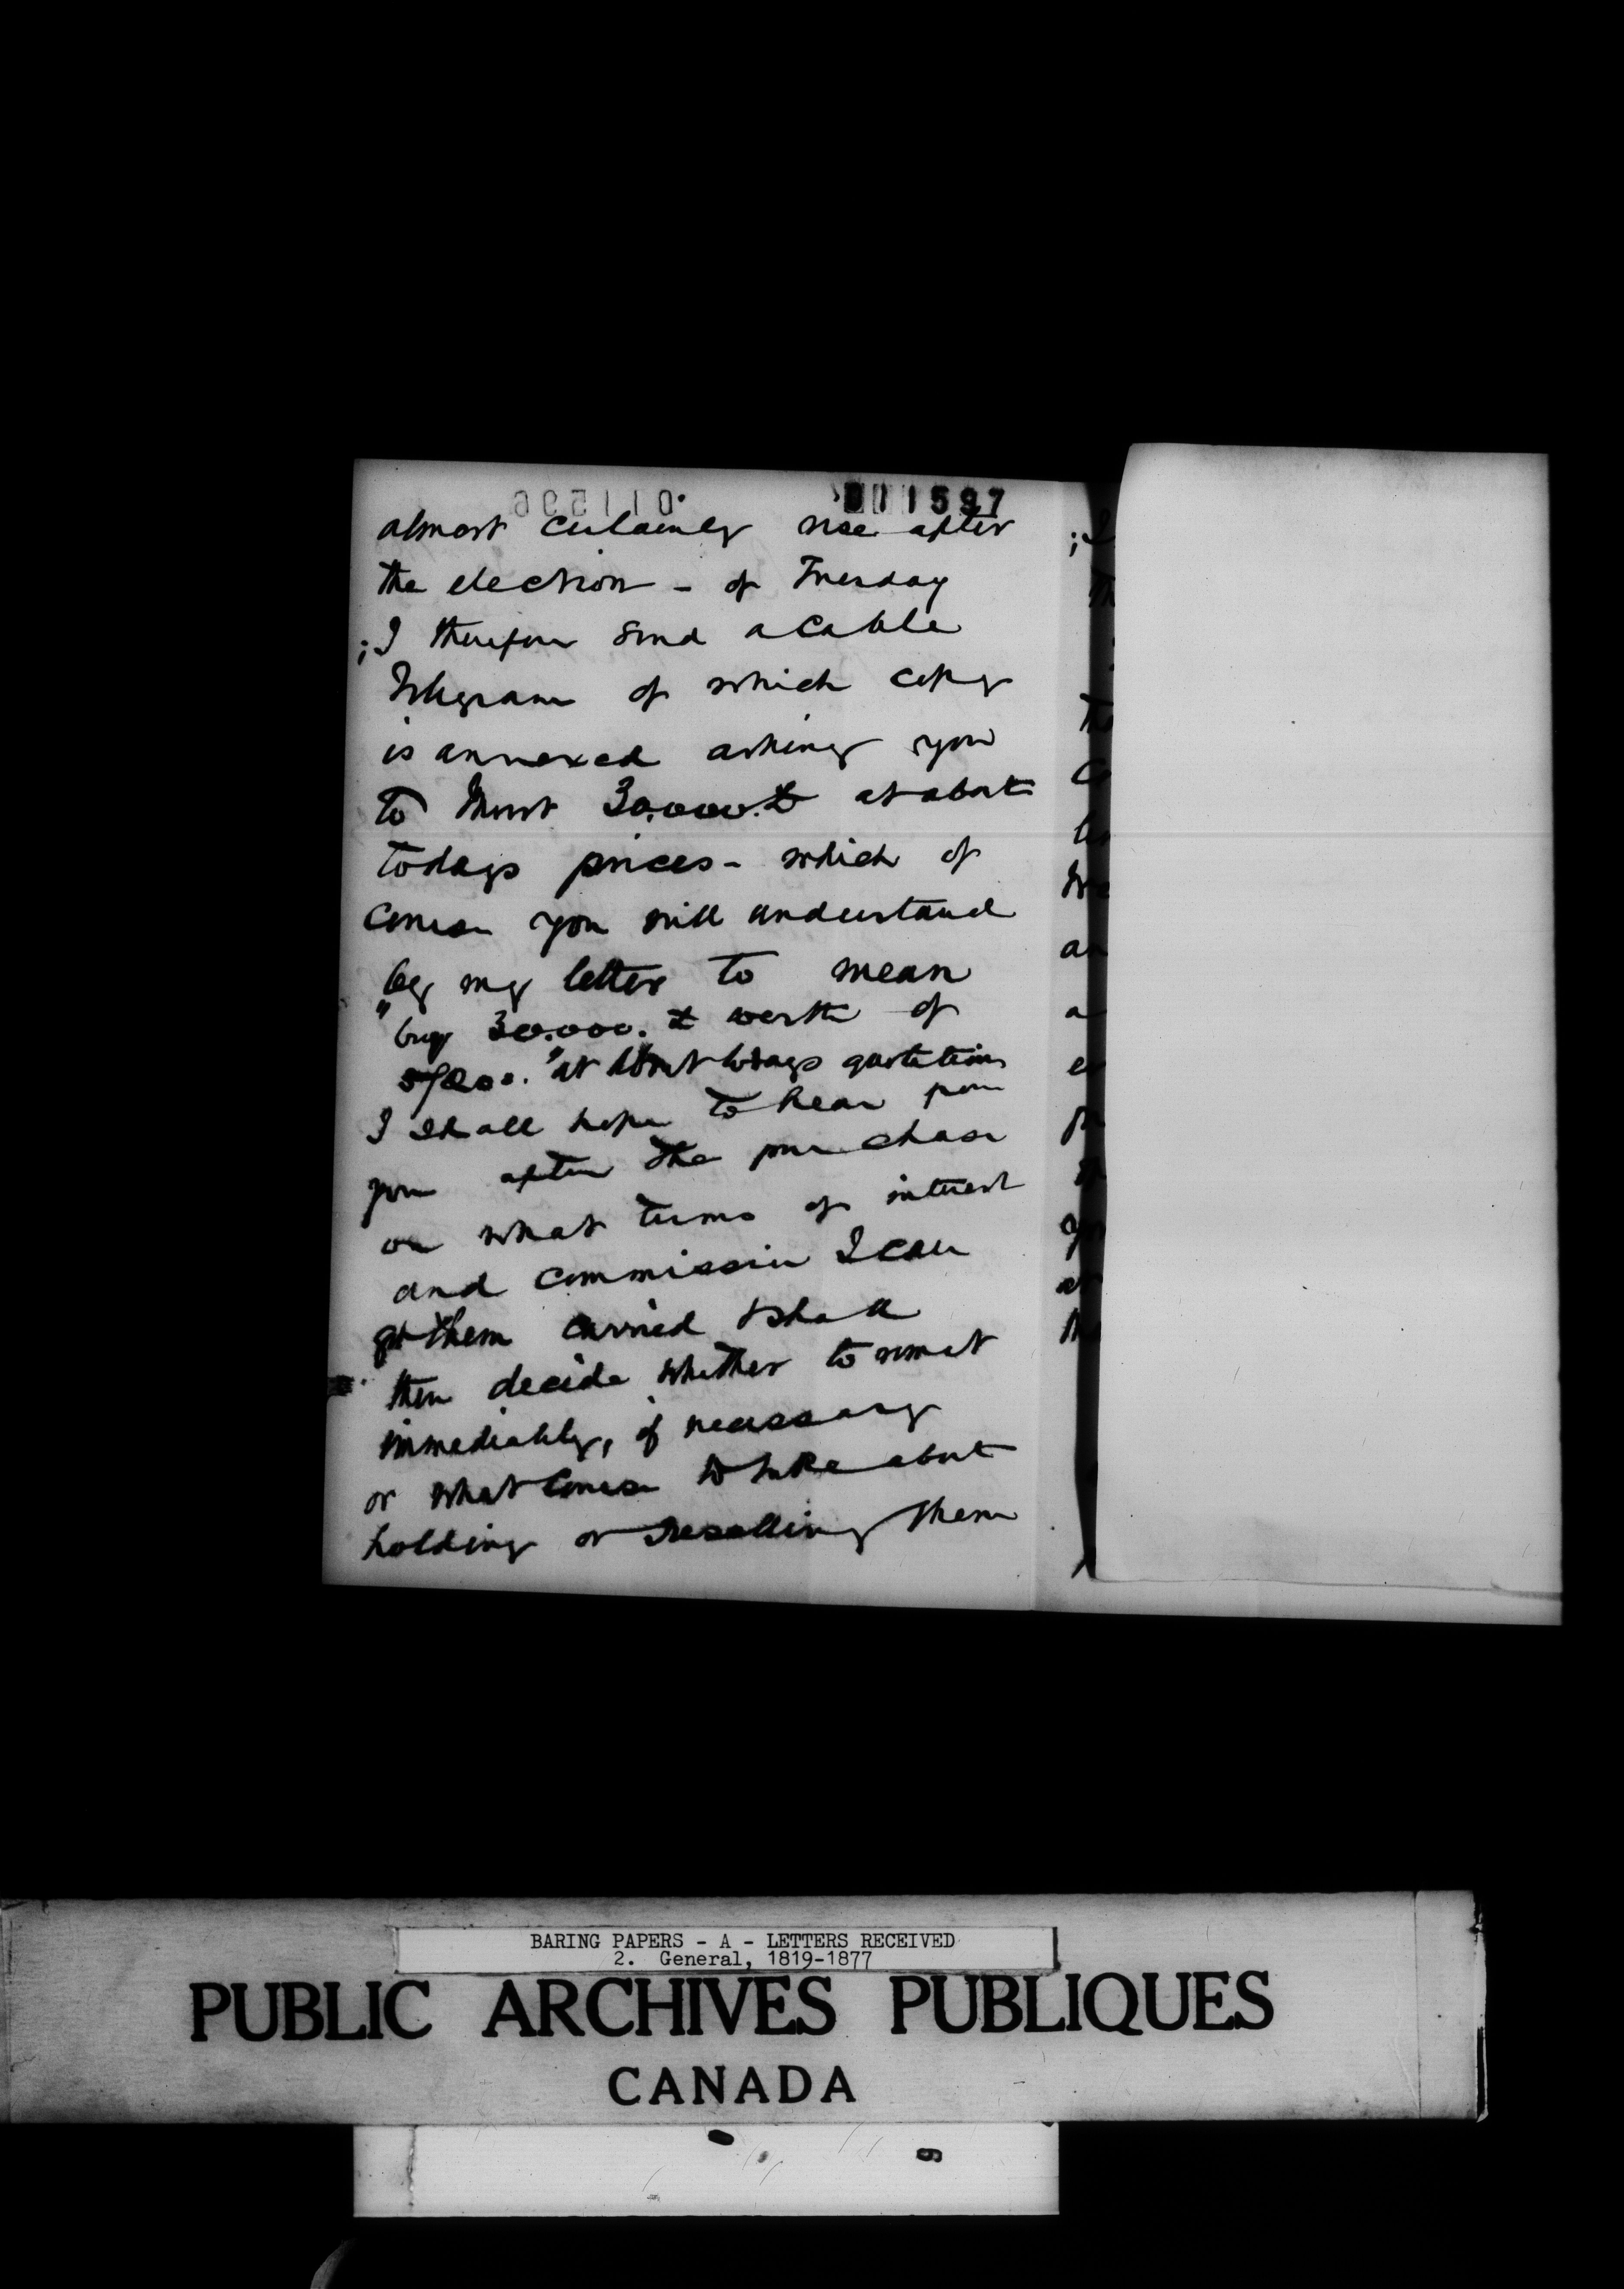 011597
almost certainly rise after
the election - of Tuesday
; I therefore send a cable
Telegram of which copy
is annexed asking you
to Invest 30.000.£ at about
todays prices - which of
course you will understand
by my letter to mean
"buy 30.000. £ worth of
5/20s." at about todays quotations
I shall hope to hear from
you after the purchase
on what terms of interest
and commission I can
get them carried & shall
then decide whether to remit
immediately, if necessary
or what course to take about
holding or reselling them
BARING PAPERS - A - LETTERS RECEIVED
2. General, 1819-1877
PUBLIC ARCHIVES PUBLIQUES
CANADA